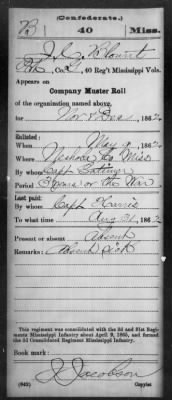 (Confederate.)
B 40 Miss.
J. L. Blount
Pvt, Co. G, 40 Reg't Mississippi Vols.
Appears on
Company Muster Roll
of the organization named above,
for Nov & Dec, 1862
Enlisted:
When May 10, 1862
Where Neshoba Co Miss
By whom Capt
Period 3 years or the War
Last paid:
By whom Capt Harris
To what time Aug 31, 1862
Present or absent Absent
Remarks: Absent sick
This regiment was consolidated with the 3d and 31st Regiments Mississippi Infantry about April 9, 1865, and formed the 3d Consolidated Regiment Mississippi Infantry.
Book mark:
J Jacobson
(642) Copyist